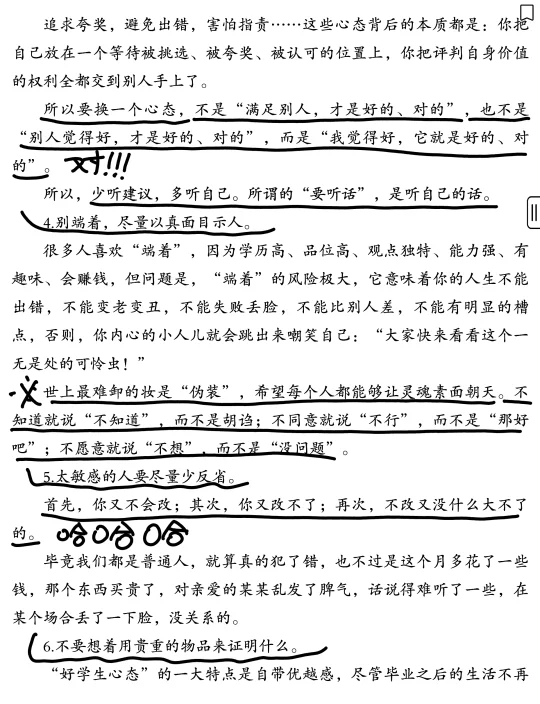 追求夸奖，避免出错，害怕指责……这些心态背后的本质都是：你把
自己放在一个等待被挑选、被夸奖、被认可的位置上，你把评判自身价值
的权利全都交到别人手上了。
所以要换一个心态，不是“满足别人，才是好的、对的”，也不是
“别人觉得好，才是好的、对的”，而是“我觉得好，它就是好的、对
的”。对!!!
所以，少听建议，多听自己。所谓的“要听话”，是听自己的话。
4.别端着，尽量以真面目示人。
很多人喜欢“端着”，因为学历高、品位高、观点独特、能力强、有
趣味、会赚钱，但问题是，“端着”的风险极大，它意味着你的人生不能
出错，不能变老变丑，不能失败丢脸，不能比别人差，不能有明显的槽
点，否则，你内心的小人儿就会跳出来嘲笑自己：“大家快来看看这个一
无是处的可怜虫！”
世上最难卸的妆是“伪装”，希望每个人都能够让灵魂素面朝天。不
知道就说“不知道”，而不是胡诌；不同意就说“不行”，而不是“那好
吧”；不愿意就说“不想”，而不是“没问题”。
5.太敏感的人要尽量少反省。
首先，你又不会改；其次，你又改不了；再次，不改又没什么大不了
的。哈哈哈
毕竟我们都是普通人，就算真的犯了错，也不过是这个月多花了一些
钱，那个东西买贵了，对亲爱的某某乱发了脾气，话说得难听了一些，在
某个场合丢了一下脸，没关系的。
6.不要想着用贵重的物品来证明什么。
“好学生心态”的一大特点是自带优越感，尽管毕业之后的生活不再